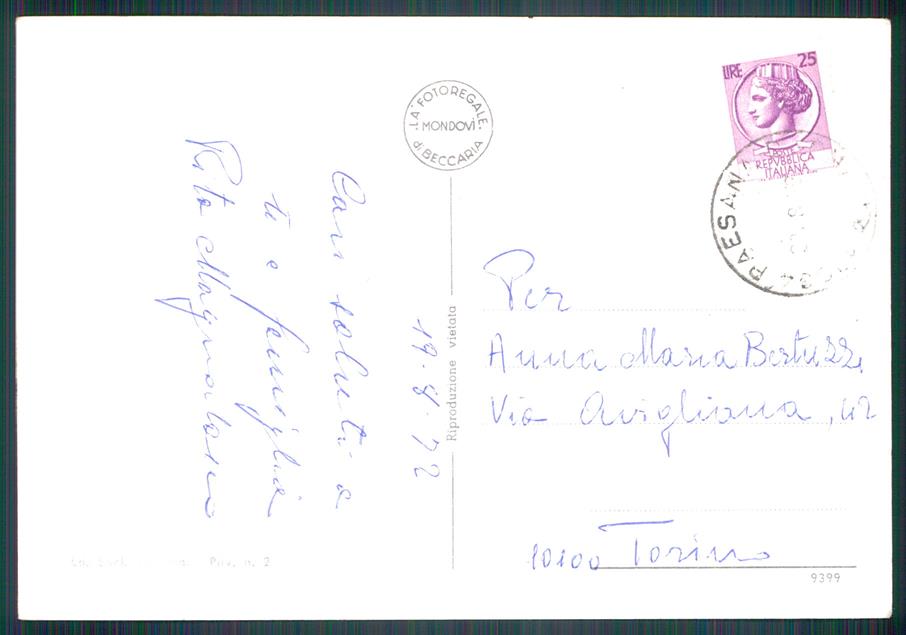 Cari saluti a
te e famiglia
Rita Magnatano
19.8.72
LA FOTOREGALE
MONDOVÌ
di BECCARIA
Riproduzione vietata
LIRE 25
POSTE
REPVBBLICA
ITALIANA
PAESAN
Per
Anna Maria Bertuzzi
Via Avigliana, 42
10100 Torino
9399
n. 2